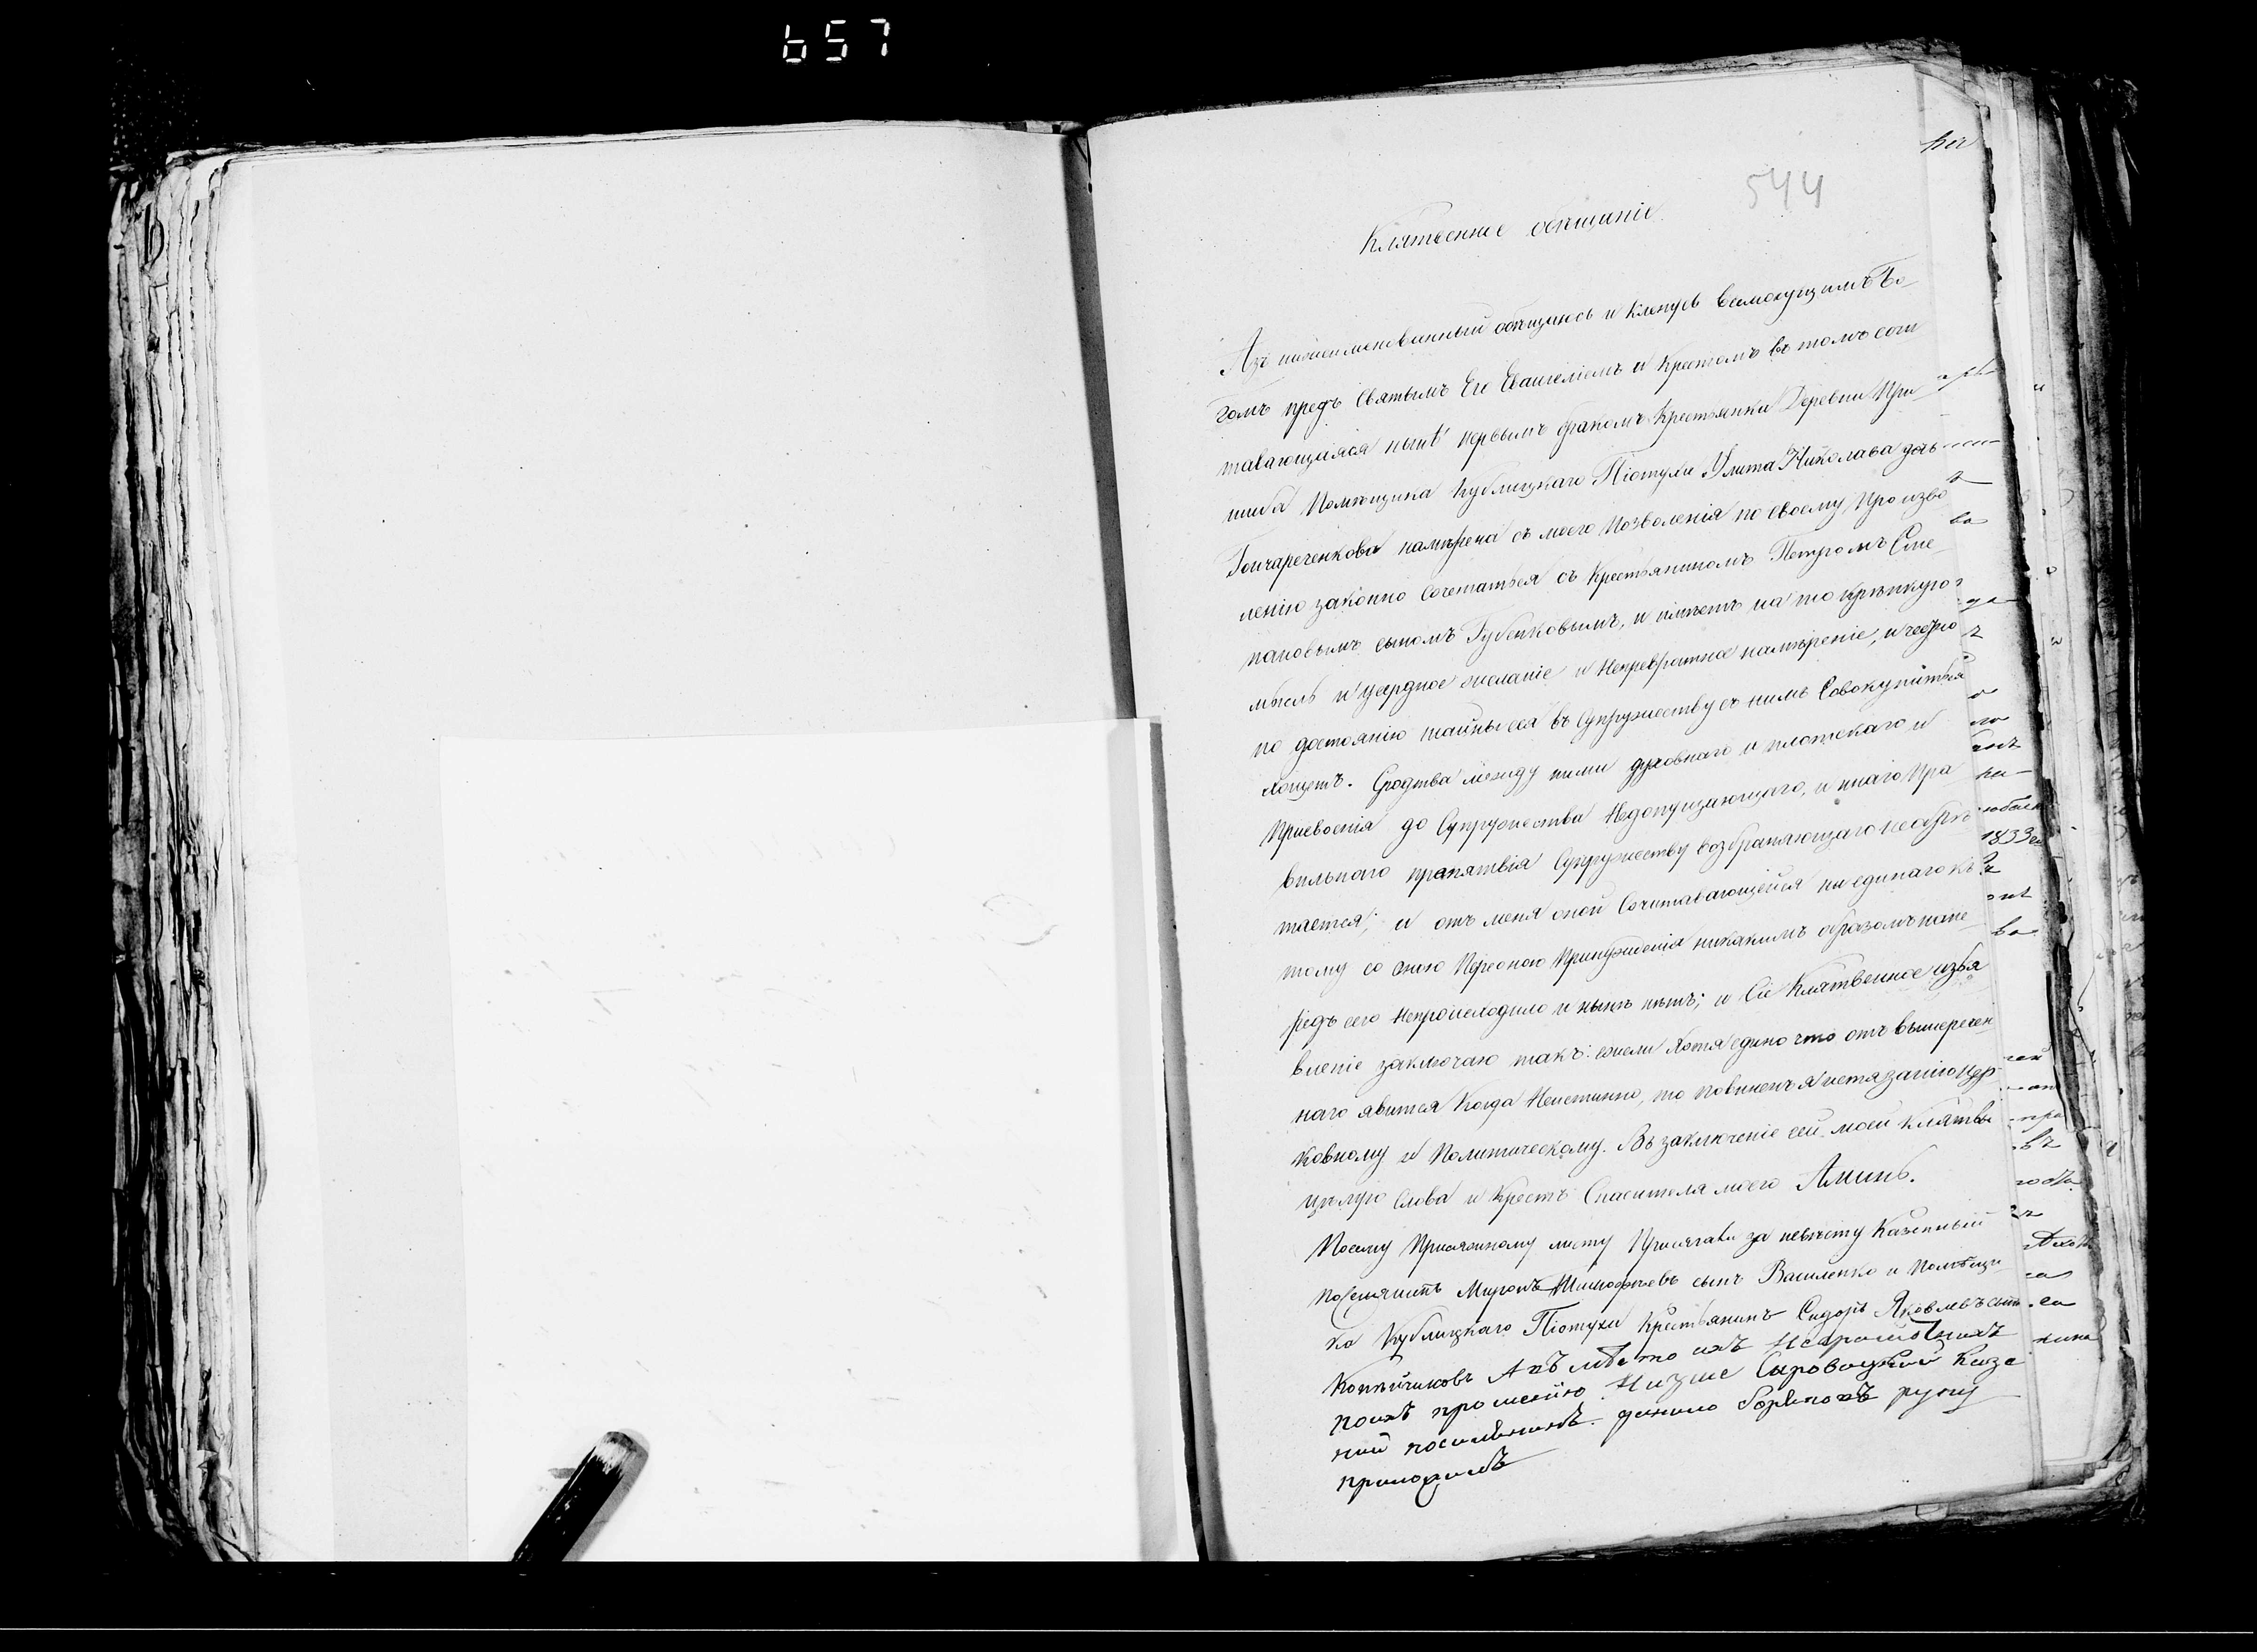 657
544
Клятвенное обѣщаніе
Азъ нижеименованный обѣщаюсь и кленусь Всемогущимъ Бо-
гомъ предъ Святымъ Его Евангеліемъ и Крестомъ въ томъ сочи
тавающаяся нынѣ первымъ бракомъ Крестьянка Деревни При
шиба Помѣщика Кублицкаго Піотухи Улита Николаева дочь
Гончареченкова намѣрена съ моего позволенія по своему произво
ленію законно сочетаться съ Крестьяниномъ Петромъ Сте-
пановымъ сыномъ Губенковымъ, и имѣетъ на то крѣпкую
мысль и усердное желаніе и непревратное намѣреніе, и честно
по достоянію тайны сея въ супружеству съ нимъ Совокупиться
хощетъ. Сродства между ними духовнаго и плотскаго и
присвоенія до Супружества недопущающаго, и инаго пра
вильнаго препятвія Супружеству возбраняющаго необрѣ
тается; и отъ меня оной Сочитавающейся ни единаго къ
тому со оною Персоною принужденія никакимъ образомъ напе-
редъ сего непроисходило и нынѣ нѣтъ; и Сіе Клятвенное изъя
вленіе заключаю такъ: ежели хотя едино что отъ вышеречен
наго явится когда неистинно, то повиненъ я истязанію цер-
ковному и Политическому. Въ заключеніе сей моей клятвы
цѣлую слова и Крестъ Спасителя моего Аминь.
Посему присяжному листу Присягали за невѣсту Казенный
поселянинъ Миронъ Тимофѣевъ сынъ Василенко и помѣщи
ка Кублицкаго Піотухи Крестьянинъ Сидоръ Яковлевъ сынъ
Копѣйчиковъ А въ мѣсто ихъ неграмотныхъ
поихъ прошенію Сыровацкий казе
ний данило руку
приложилъ
1833